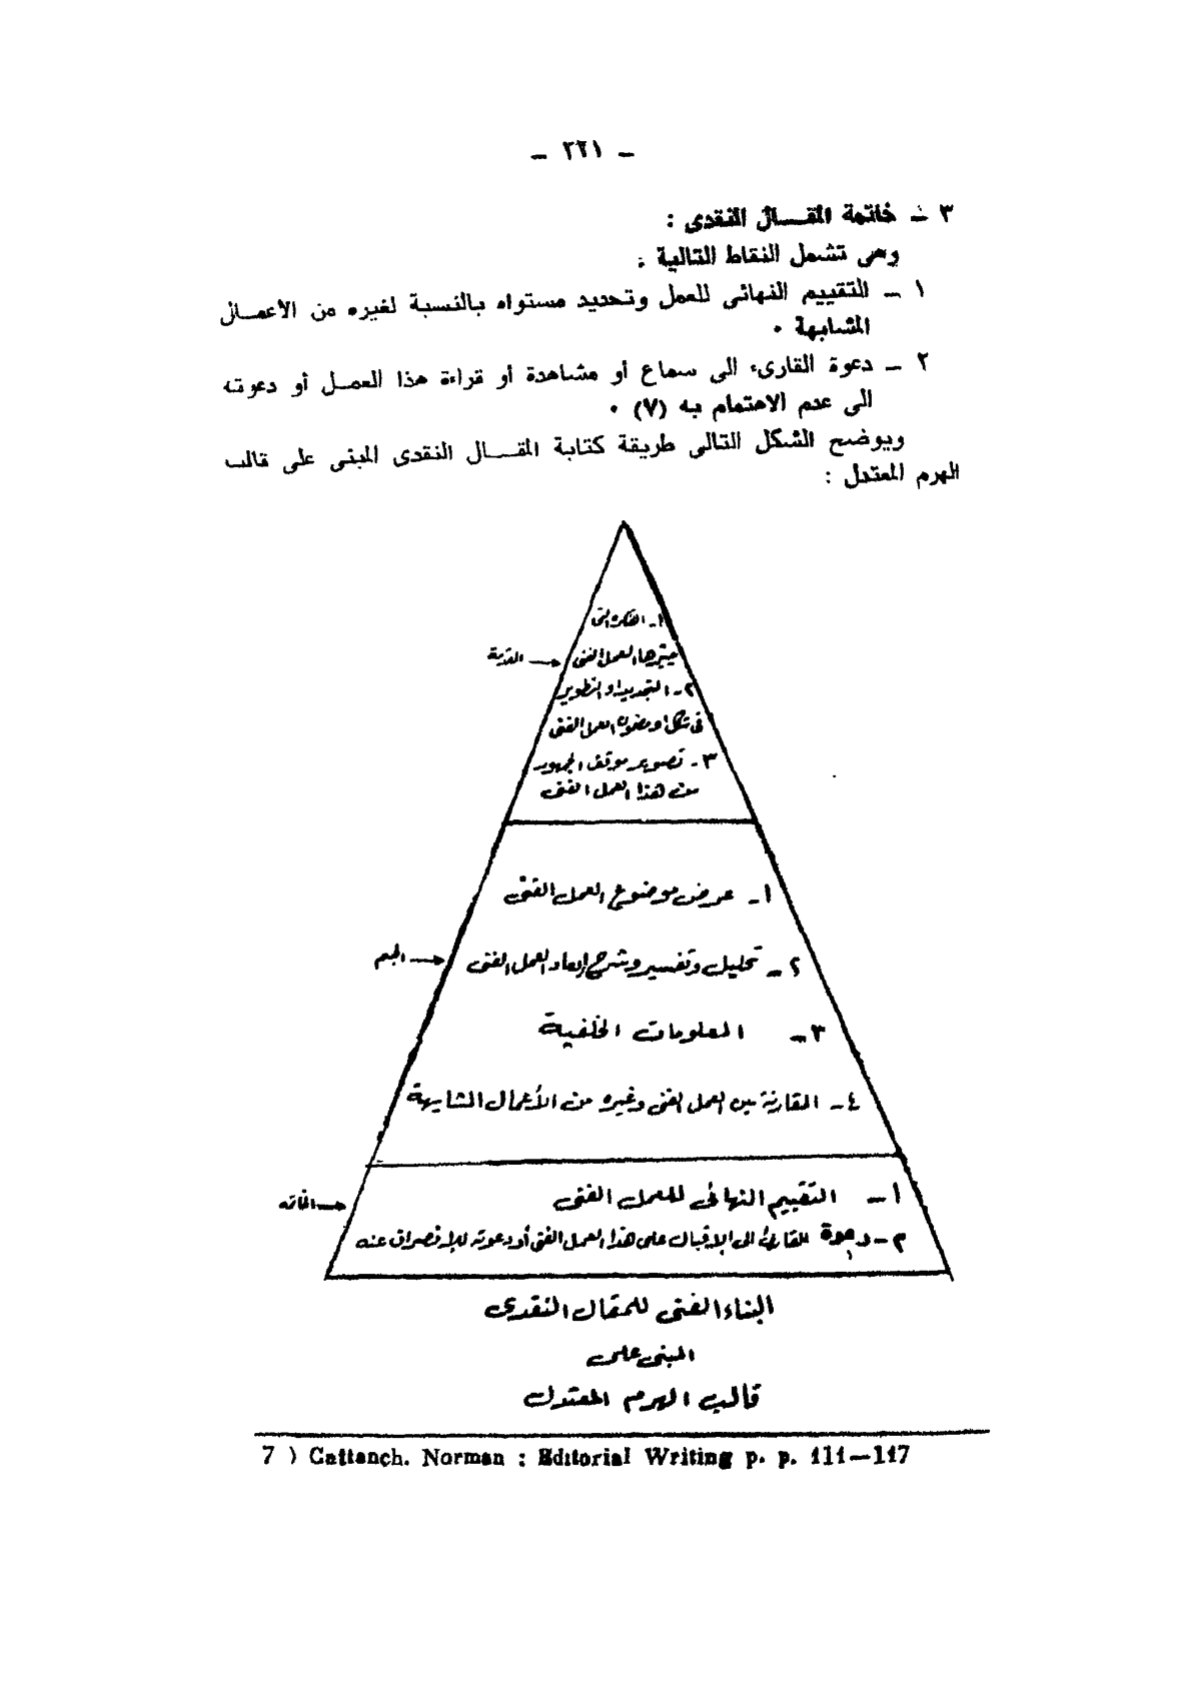 ــ ٢٢١ ــ
٣ ــ خاتمة المقـــال النقدى :
وهى تشمل النقاط التالية :
١ ــ التقييم النهائى للعمل وتحديد مستواه بالنسبة لغيره من الاعمـــال
المشابهة ٠
٢ ــ دعوة القارىء الى سماع أو مشاهدة أو قراءة هذا العمـــل أو دعوته
الى عدم الاهتمام به (٧) ٠
ويوضح الشكل التالى طريقة كتابة المقـــال النقدى المبنى على قالب
الهرم المعتدل :
١ـ الفكرة التى
يثيرها العمل الفنى
المقدمة
٢ـ التجديد او التطوير
فى شكل او مضمون العمل الفنى
٣ـ تصوير موقف الجمهور
من هذا العمل الفنى
١ـ عرض موضوع العمل الفنى
٢ـ تحليل وتفسير وشرح ابعاد العمل الفنى
الجسم
٣ـ المعلومات الخلفية
٤ـ المقارنة بين العمل الفنى وغيره من الأعمال المشابهة
١ـ التقييم النهائى للعمل الفنى
الخاتمه
٢ـ دعوة القارئ الى الإقبال على هذا العمل الفنى أو دعوته للإنصراف عنه
البناء الفنى للمقال النقدى
المبنى على
قالب الهرم المعتدل
7 ) Cattanch. Norman : Editorial Writing p. p. 111—117